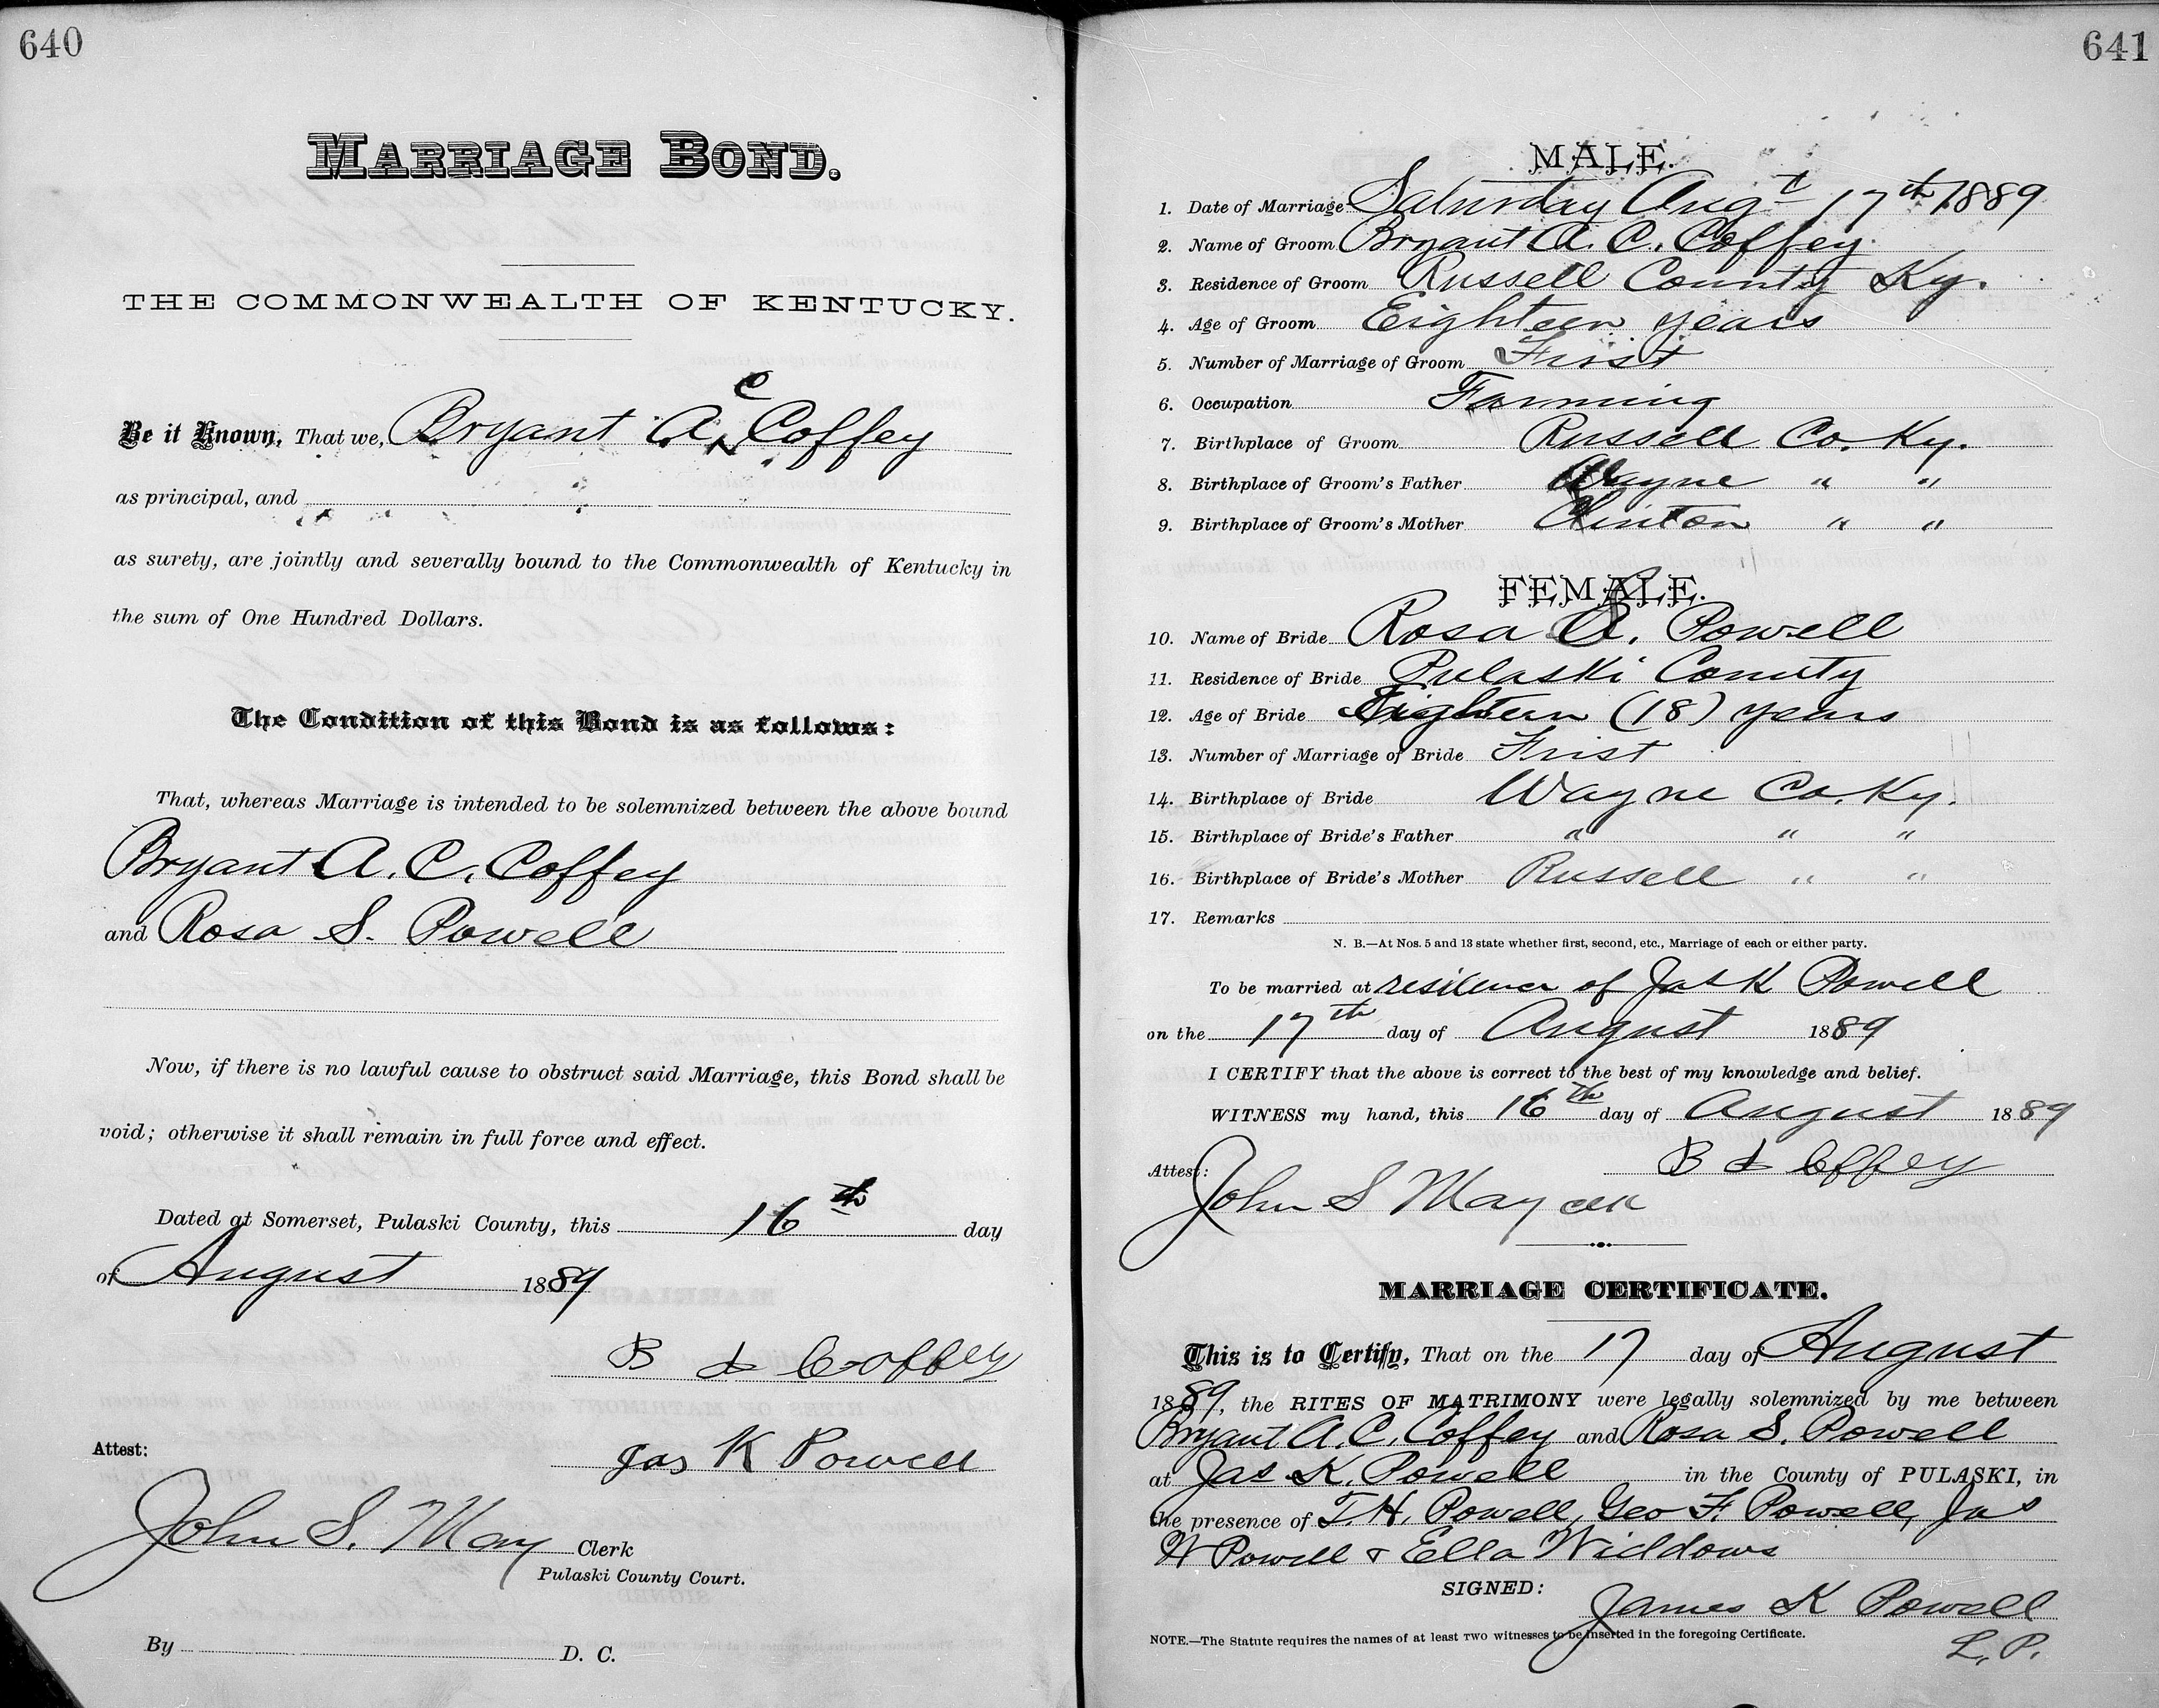 640
MARRIAGE BOND.
THE COMMONWEALTH OF KENTUCKY.
Be it Known, That we, Bryant A. C Coffey
as principal, and
as surety, are jointly and severally bound to the Commonwealth of Kentucky in
the sum of One Hundred Dollars.
The Condition of this Bond is as follows:
That, whereas Marriage is intended to be solemnized between the above bound
Bryant A. C. Coffey
and Rosa S. Powell
Now, if there is no lawful cause to obstruct said Marriage, this Bond shall be
void; otherwise it shall remain in full force and effect.
Dated at Somerset, Pulaski County, this 16th day
of August 1889
B Coffey
Attest:
Jas K Powell
John S. May Clerk
Pulaski County Court.
By D. C.
641
MALE.
1. Date of Marriage Saturday Augt 17th 1889
2. Name of Groom Bryant A. C. Coffey
3. Residence of Groom Russell County Ky.
4. Age of Groom Eighteen years
5. Number of Marriage of Groom First
6. Occupation Farming
7. Birthplace of Groom Russell Co. Ky.
8. Birthplace of Groom's Father Wayne " "
9. Birthplace of Groom's Mother Clinton " "
FEMALE.
10. Name of Bride Rosa Powell
11. Residence of Bride Pulaski County
12. Age of Bride Eighteen (18) years
13. Number of Marriage of Bride First
14. Birthplace of Bride Wayne Co. Ky.
15. Birthplace of Bride's Father " " "
16. Birthplace of Bride's Mother Russell " "
17. Remarks
N. B.—At Nos. 5 and 13 state whether first, second, etc., Marriage of each or either party.
To be married at residence of Jas K Powell
on the 17th day of August 1889
I CERTIFY that the above is correct to the best of my knowledge and belief.
WITNESS my hand, this 16th day of August 1889
B Coffey
Attest:
John S May clk
MARRIAGE CERTIFICATE.
This is to Certify, That on the 17 day of August
1889, the RITES OF MATRIMONY were legally solemnized by me between
Bryant A. C. Coffey and Rosa S. Powell
at Jas K. Powell in the County of PULASKI, in
the presence of T. H. Powell, Geo F. Powell, Jas
H Powell & Ella Widdows
SIGNED:
James K Powell
NOTE.—The Statute requires the names of at least TWO witnesses to be inserted in the foregoing Certificate.